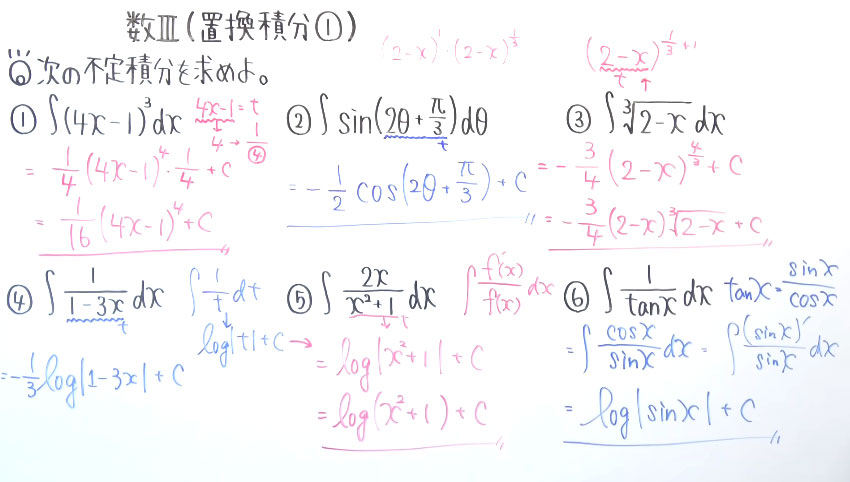 数Ⅲ(置換積分①)
次の不定積分を求めよ。
(2-x)¹·(2-x)^{1/3}
(2-x)^{1/3+1}
t ↑
① ∫(4x-1)³dx
4x-1=t
4 → 1/④
= 1/4 (4x-1)⁴·1/4 + C
= 1/16 (4x-1)⁴+C
② ∫sin(2θ+π/3)dθ
t
= -1/2 cos(2θ+π/3)+C
③ ∫∛(2-x) dx
= -3/4 (2-x)^{4/3} + C
= -3/4 (2-x)∛(2-x) + C
④ ∫ 1/(1-3x) dx
t
∫ 1/t dt
↓
log|t|+C →
= -1/3 log|1-3x| + C
⑤ ∫ 2x/(x²+1) dx
→ t
∫ f'(x)/f(x) dx
= log|x²+1| + C
= log(x²+1) + C
⑥ ∫ 1/tanx dx
tanx = sinx/cosx
= ∫ cosx/sinx dx = ∫ (sinx)'/sinx dx
= log|sinx| + C